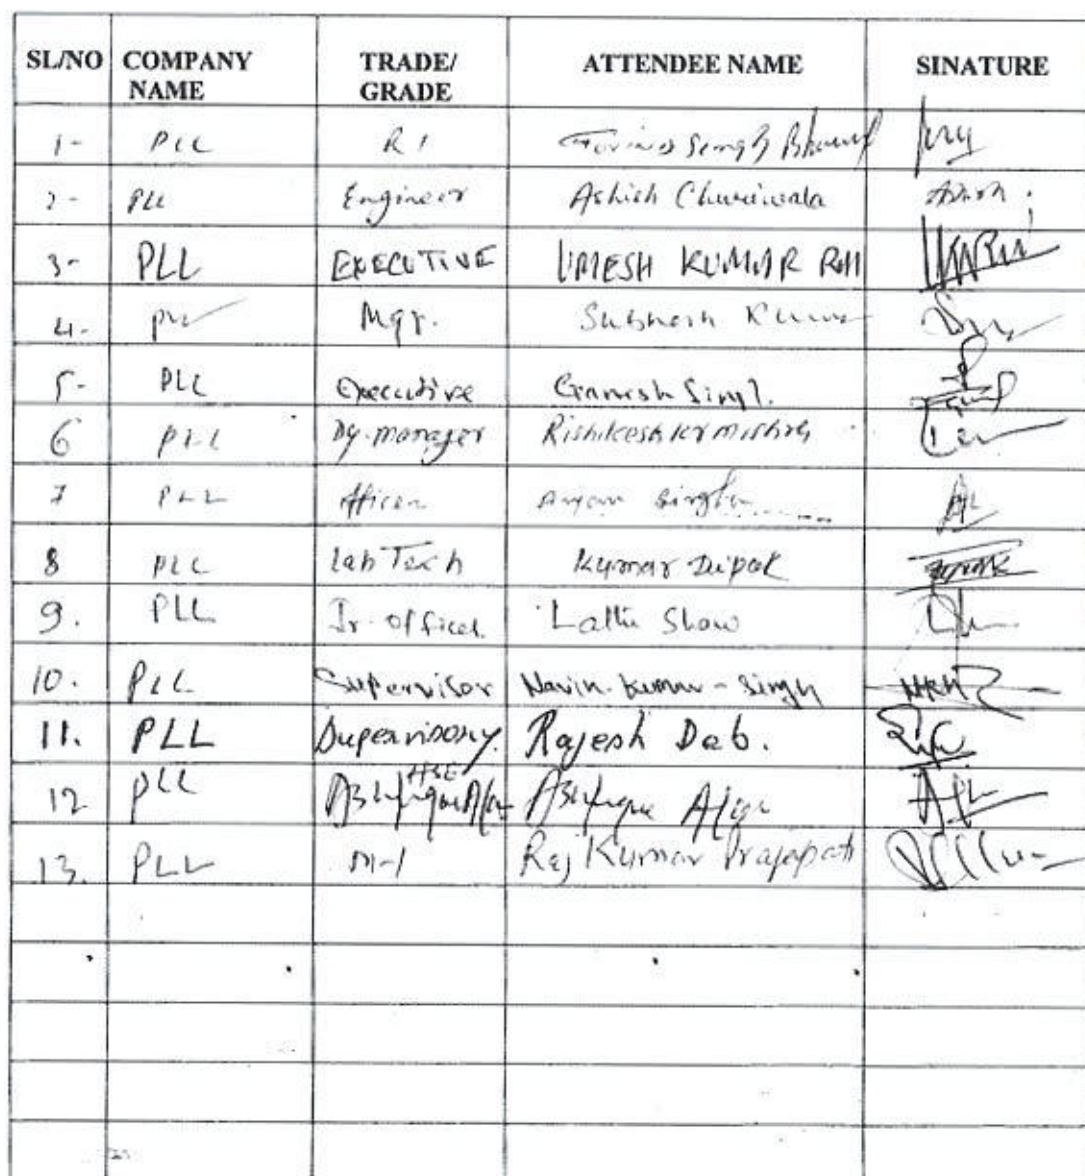 SL/NO COMPANY NAME TRADE/ GRADE ATTENDEE NAME SINATURE
1- PLL R1 Singh
2- PLL Engineer Ashish Churiwala
3- PLL EXECUTIVE UMESH KUMAR RAI
4- PLL Mgr. Kumar
5- PLL Executive Ganesh Singh
6 PLL Dy. manager Rishikesh kr mishra
7 PLL Officer singh
8 PLL Lab Tech Kumar Dipak
9. PLL Jr. officer Lattu Shaw
10. PLL Supervisor Navin Kumar - Singh
11. PLL Supervisory. Rajesh Deb.
12 PLL HSE
13. PLL M-1 Raj Kumar Prajapati